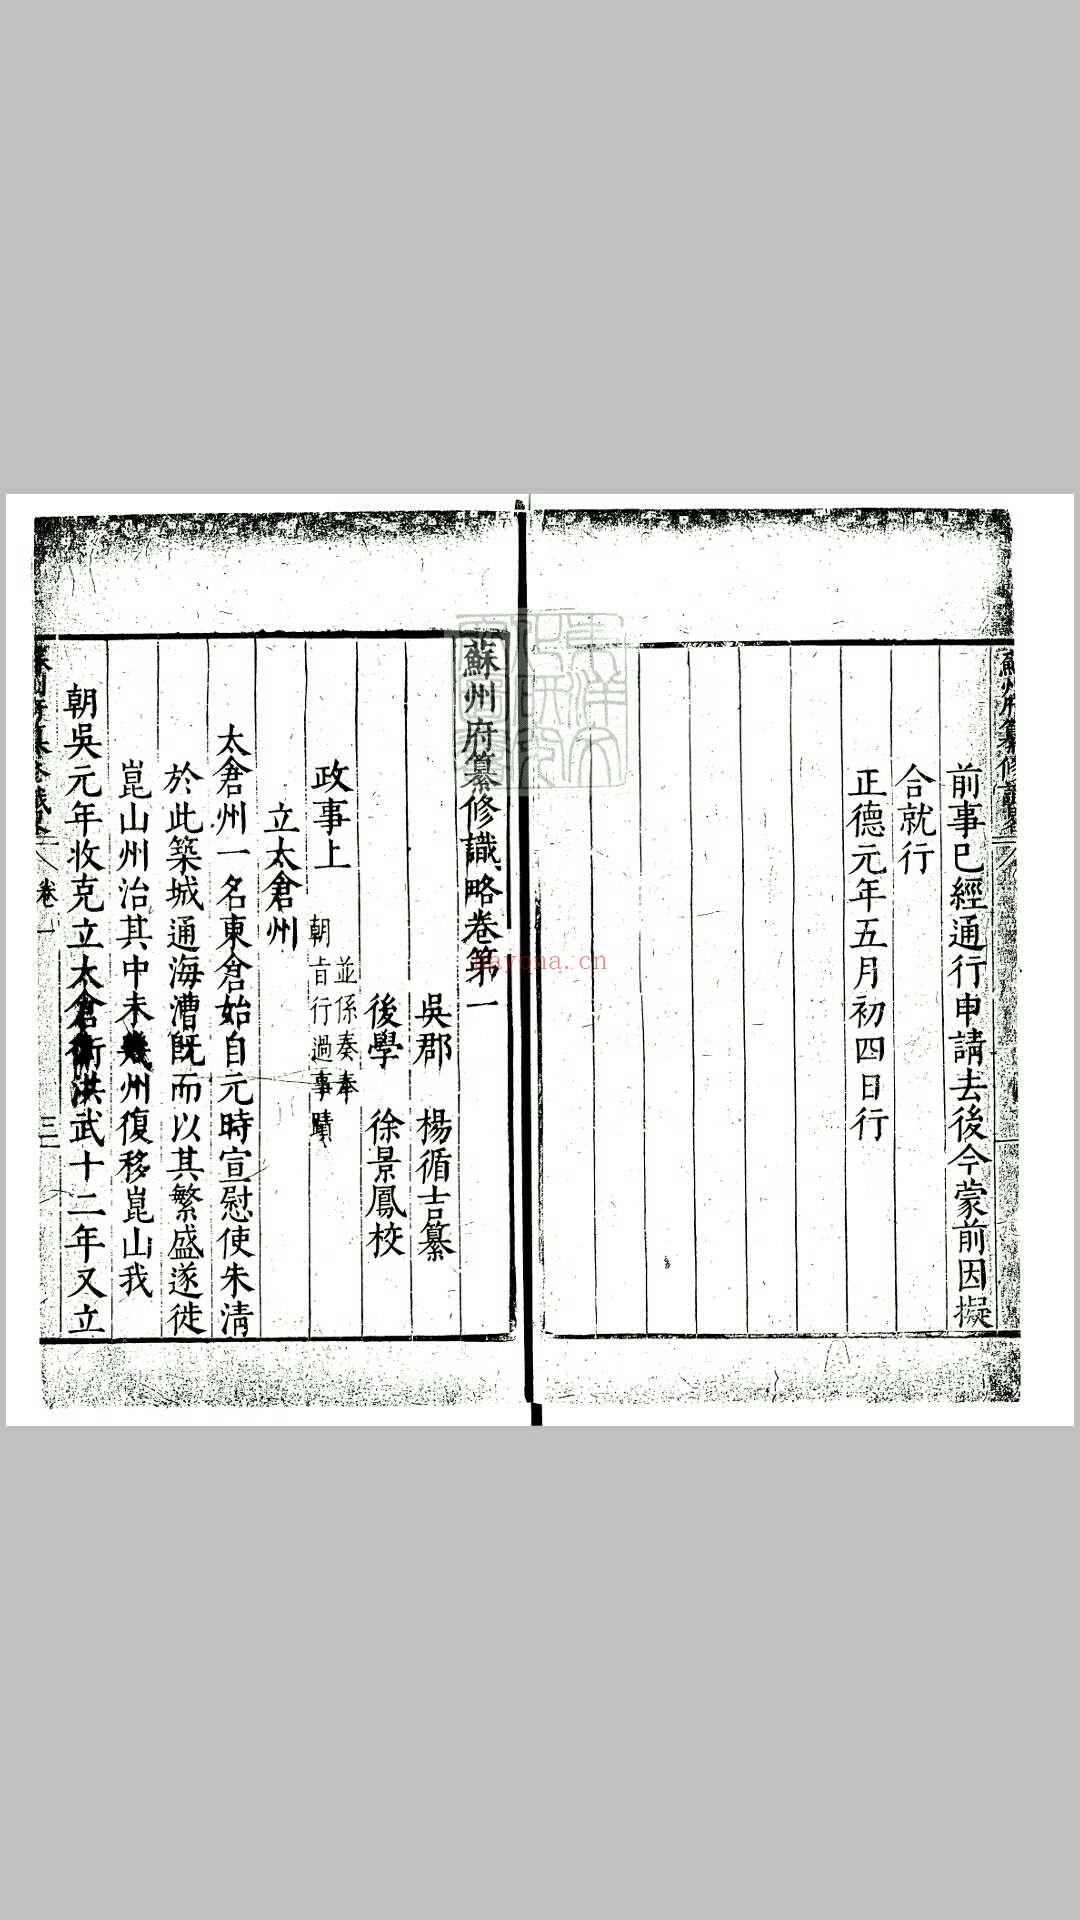 蘇州府纂修識畧
前事已經通行申請去後今蒙前因擬
合就行
正德元年五月初四日行
蘇州府纂修識略卷第一
吳郡 楊循吉纂
後學 徐景鳳校
政事上 並係奏奉
朝旨行過事蹟
立太倉州
太倉州一名東倉始自元時宣慰使朱清
於此築城通海漕旣而以其繁盛遂徙
崑山州治其中未幾州復移崑山我
朝吳元年收克立太倉衛洪武十二年又立
卷一
三
nayona.cn